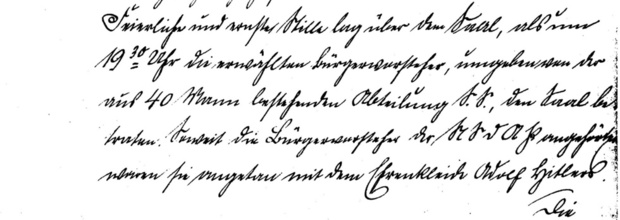 Feierliche und ernste Stille lag über dem Saal, als um
19 30 Uhr die erwählten Bürgervorsteher, umgeben von der
aus 40 Mann bestehenden Abteilung S.S., den Saal be-
traten. Soweit die Bürgervorsteher der N S d A P angehörten
waren sie angetan mit dem Ehrenkleide Adolf Hitlers.
Die